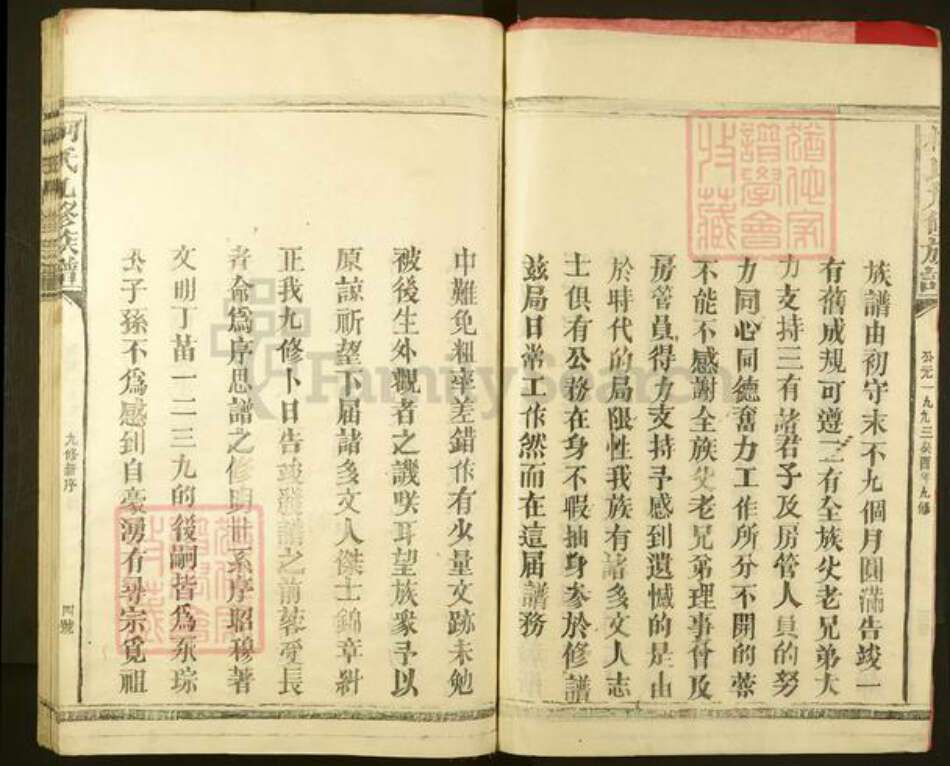 族譜由初守末不九個月圓滿告竣一
有舊成規可遵二有全族父老兄弟大
力支持三有諸君子及房管人員的努
力同心同德奮力工作所分不開的
不能不感謝全族父老兄弟理事會及
房管員得力支持予感到遺憾的是由
於時代的局限性我族有諸多文人志
士俱有公務在身不暇抽身參於修譜
茲局日常工作然而在這屆譜務
公元一九九三癸酉年九修
中難免粗率差錯作有少量文跡未勉
被後生外觀者之譏咲耳望族衆予以
原諒祈望下屆諸多文人傑士錦章糾
正我九修卜日告竣發譜之前蒙愛長
者命爲序思譜之修明世系序昭穆著
文明丁苗一二三九的後嗣皆爲
子孫不爲感到自豪湧有尋宗覓祖
何氏九修族譜
九修新序
四號
猶他家譜學會收藏
FamilySearch